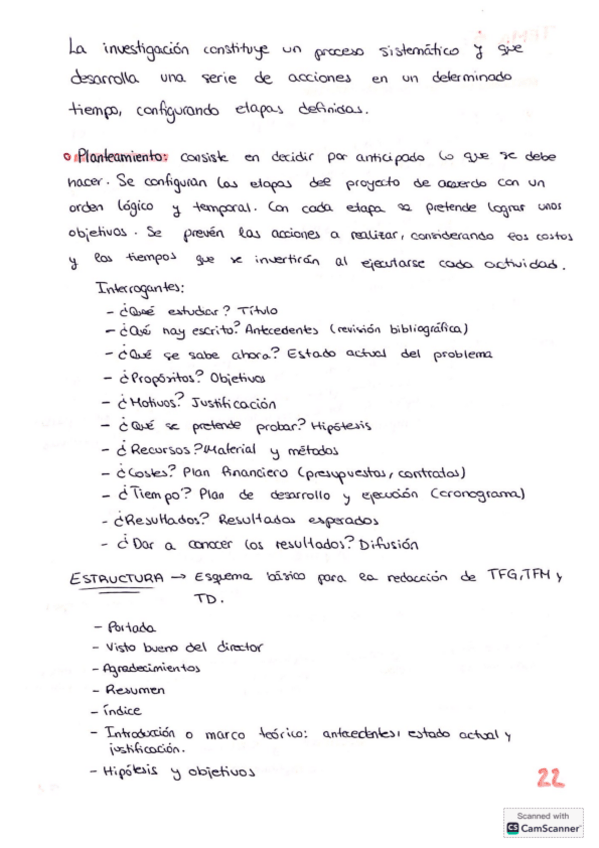 La investigación constituye un proceso sistemático y que
desarrolla una serie de acciones en un determinado
tiempo, configurando etapas definidas.
Planteamiento: consiste en decidir por anticipado lo que se debe
hacer. Se configuran las etapas del proyecto de acuerdo con un
orden lógico y temporal. Con cada etapa se pretende lograr unos
objetivos. Se prevén las acciones a realizar, considerando los costos
y los tiempos que se invertirán al ejecutarse cada actividad.
Interrogantes:
- ¿Qué estudiar? Título
- ¿Qué hay escrito? Antecedentes (revisión bibliográfica)
- ¿Qué se sabe ahora? Estado actual del problema
- ¿Propósitos? Objetivos
- ¿Motivos? Justificación
- ¿Qué se pretende probar? Hipótesis
- ¿Recursos? Material y métodos
- ¿Costes? Plan financiero (presupuestos, contratos)
- ¿Tiempo? Plan de desarrollo y ejecución (cronograma)
- ¿Resultados? Resultados esperados
- ¿Dar a conocer los resultados? Difusión
ESTRUCTURA → Esquema básico para la redacción de TFG, TFM y
TD.
- Portada
- Visto bueno del director
- Agradecimientos
- Resumen
- índice
- Introducción o marco teórico: antecedentes, estado actual y
justificación.
- Hipótesis y objetivos
22
Scanned with
CS CamScanner